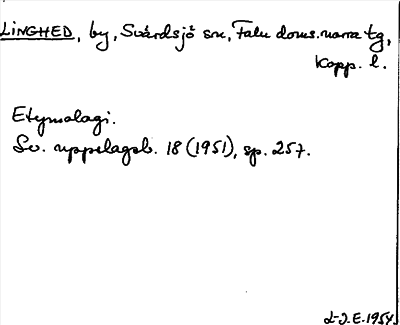 LINGHED, by, Svärdsjö sn, Falu doms. norra tg,
Kopp. l.
Etymologi.
Sv. uppslagsb. 18 (1951), sp. 257.
L-J.E. 1954.